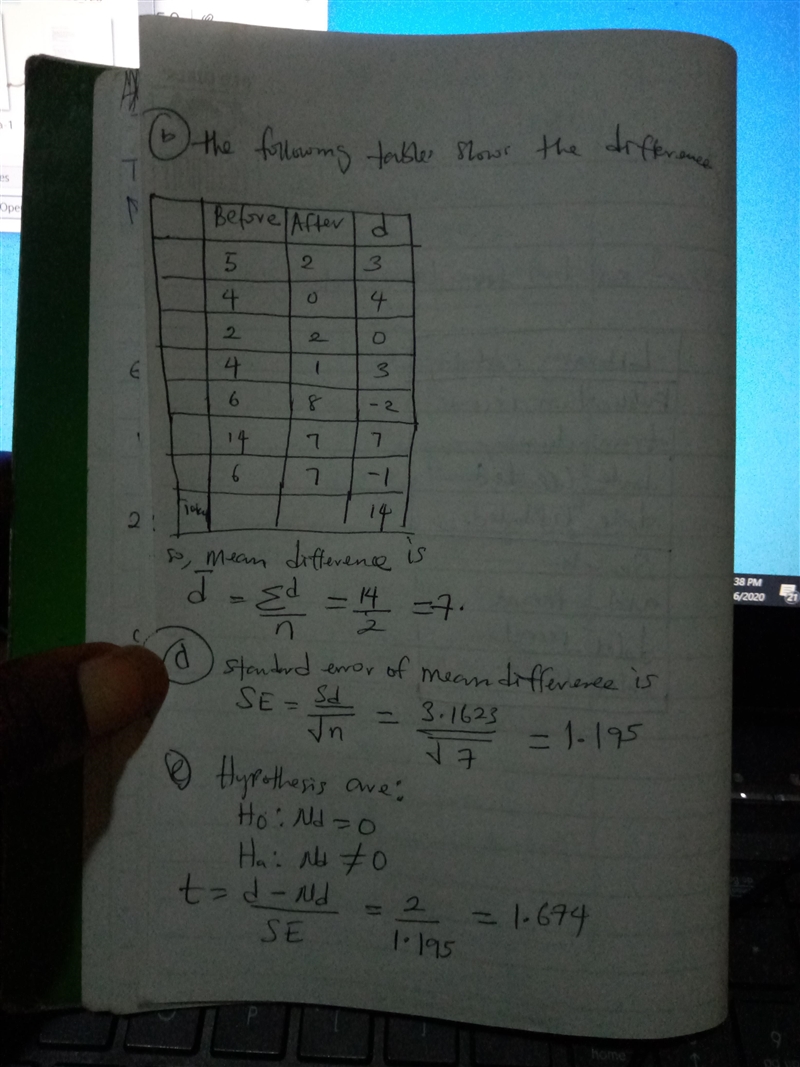 b the following tables shows the difference
Before After d
5 2 3
4 0 4
2 2 0
4 1 3
6 8 -2
14 7 7
6 7 -1
Total 14
so, mean difference is
d̄ = Σd/n = 14/2 = 7.
d standard error of mean difference is
SE = Sd/√n = 3.1623/√7 = 1.195
e Hypothesis are:
H0: Nd = 0
Ha: Nd ≠ 0
t = d - Nd/SE = 2/1.195 = 1.674
38 PM
6/2020
21
es
Ope
P
home
9